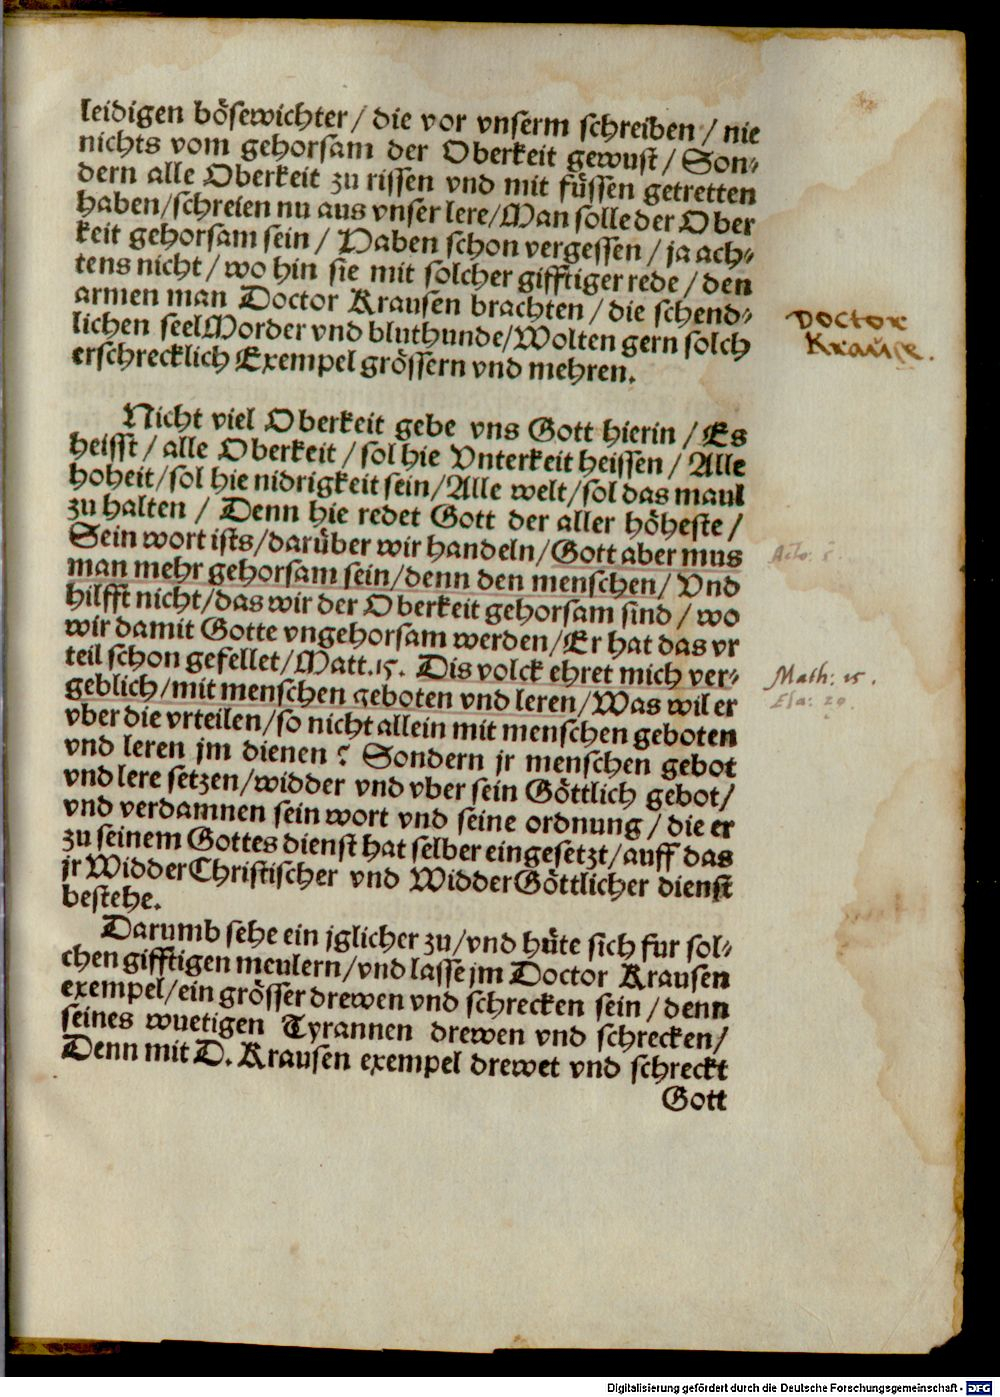 leidigen bösewichter / die vor vnserm schreiben / nie
nichts vom gehorsam der Oberkeit gewust / Son-
dern alle Oberkeit zu rissen vnd mit füssen getretten
haben/schreien nu aus vnser lere/Man solle der Ober
keit gehorsam sein / Haben schon vergessen / ja ach-
tens nicht / wo hin sie mit solcher gifftiger rede / den
armen man Doctor Krausen brachten / die schend-
lichen seelMorder vnd bluthunde/Wolten gern solch
erschrecklich Exempel grössern vnd mehren.
Doctor
Krause.
Nicht viel Oberkeit gebe vns Gott hierin / Es
heisst / alle Oberkeit / sol hie Vnterkeit heissen / Alle
hoheit/sol hie nidrigkeit sein/Alle welt/sol das maul
zu halten / Denn hie redet Gott der aller höheste /
Sein wort ists/darüber wir handeln/Gott aber mus
man mehr gehorsam sein/denn den menschen/ Vnd
hilfft nicht/das wir der Oberkeit gehorsam sind / wo
wir damit Gotte vngehorsam werden/Er hat das vr
teil schon gefellet/Matt.15. Dis volck ehret mich ver-
geblich/mit menschen geboten vnd leren/Was wil er
vber die vrteilen/so nicht allein mit menschen geboten
vnd leren jm dienen ? Sondern jr menschen gebot
vnd lere setzen/widder vnd vber sein Göttlich gebot/
vnd verdamnen sein wort vnd seine ordnung / die er
zu seinem Gottes dienst hat selber eingesetzt/auff das
jr WidderChristischer vnd WidderGöttlicher dienst
bestehe.
Acto: 5.
Math: 15.
Esa: 29.
Darumb sehe ein jglicher zu/vnd hüte sich fur sol-
chen gifftigen meulern/vnd lasse jm Doctor Krausen
exempel/ein grösser drewen vnd schrecken sein / denn
seines wuetigen Tyrannen drewen vnd schrecken/
Denn mit D. Krausen exempel drewet vnd schreckt
Gott
Digitalisierung gefördert durch die Deutsche Forschungsgemeinschaft - DFG